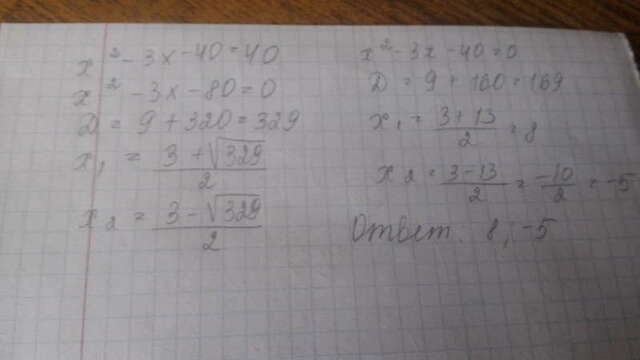 x² - 3x - 40 = 40
x² - 3x - 80 = 0
D = 9 + 320 = 329
x₁ = (3 + √329)/2
x₂ = (3 - √329)/2
x² - 3x - 40 = 0
D = 9 + 160 = 169
x₁ = (3 + 13)/2 = 8
x₂ = (3 - 13)/2 = -10/2 = -5
Ответ: 8, -5